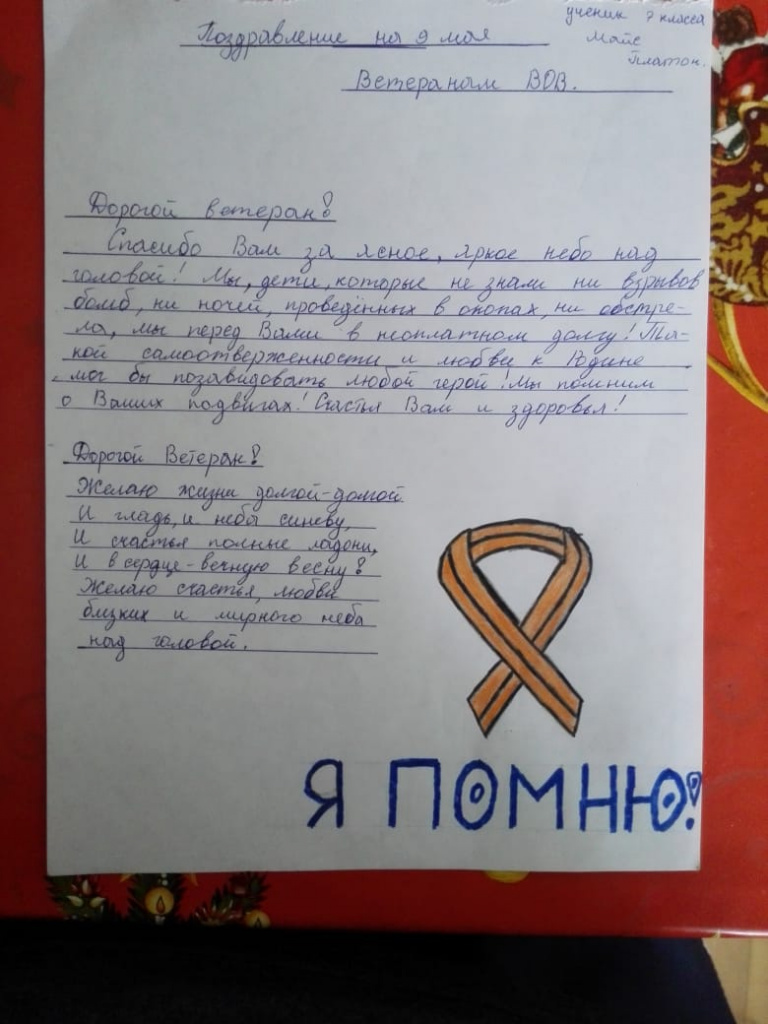 Поздравление на 9 мая
ученик 7 класса
Майс
Платон.
Ветеранам ВОВ.
Дорогой ветеран!
Спасибо Вам за ясное, яркое небо над
головой! Мы, дети, которые не знали ни взрывов
бомб, ни ночей, проведённых в окопах, ни обстре-
ла, мы перед Вами в неоплатном долгу! Та-
кой самоотверженности и любви к Родине
мог бы позавидовать любой герой! Мы помним
о Ваших подвигах! Счастья Вам и здоровья!
Дорогой Ветеран!
Желаю жизни долгой-долгой
И гладь, и небы синеву,
И счастья полные ладони,
И в сердце-вечную весну!
Желаю счастья, любви
близких и мирного неба
над головой.
Я ПОМНЮ!